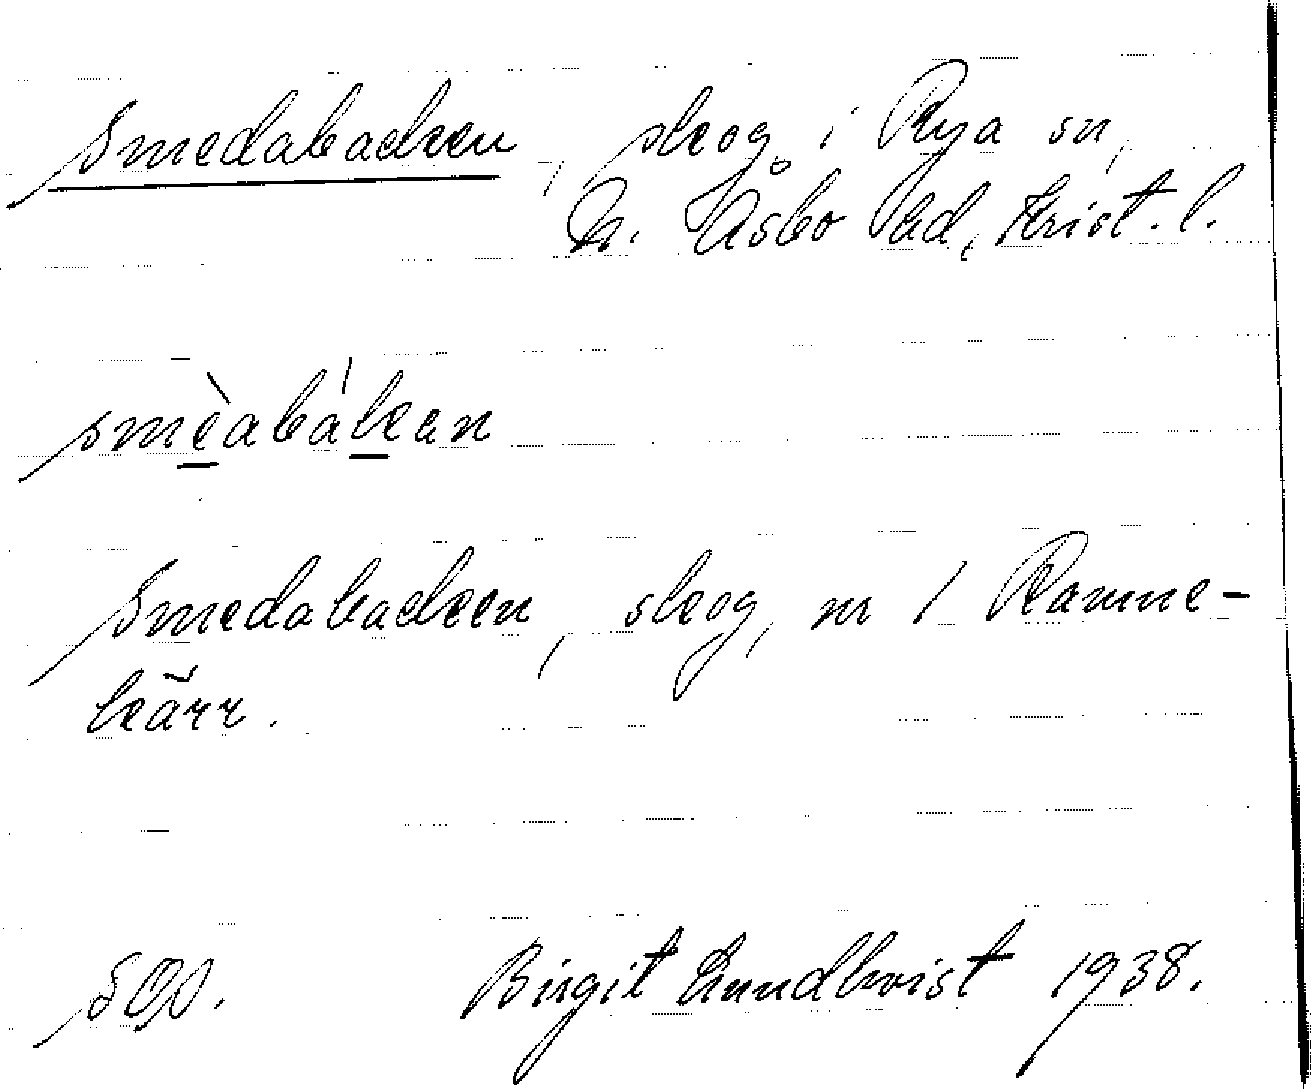 Smedabacken, skog i Rya sn,
N. Åsbo hd, Krist. l.
smèabákan
Smedabacken, skog, nr 1 Ramne-
kärr.
Birgit Lundkvist 1938.